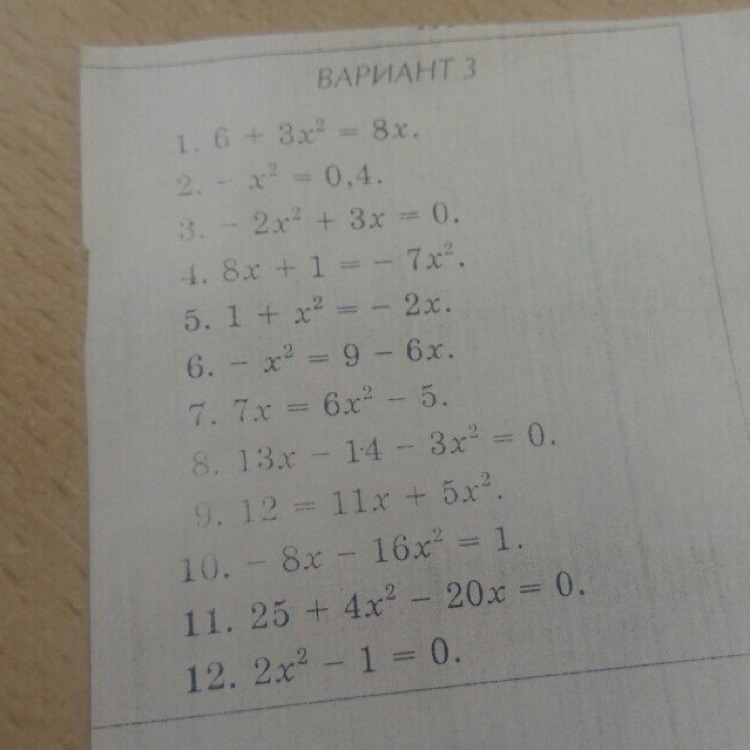 ВАРИАНТ 3
1. 6 + 3x² = 8x.
2. – x² = 0,4.
3. – 2x² + 3x = 0.
4. 8x + 1 = – 7x².
5. 1 + x² = – 2x.
6. – x² = 9 – 6x.
7. 7x = 6x² – 5.
8. 13x – 14 – 3x² = 0.
9. 12 = 11x + 5x².
10. – 8x – 16x² = 1.
11. 25 + 4x² – 20x = 0.
12. 2x² – 1 = 0.